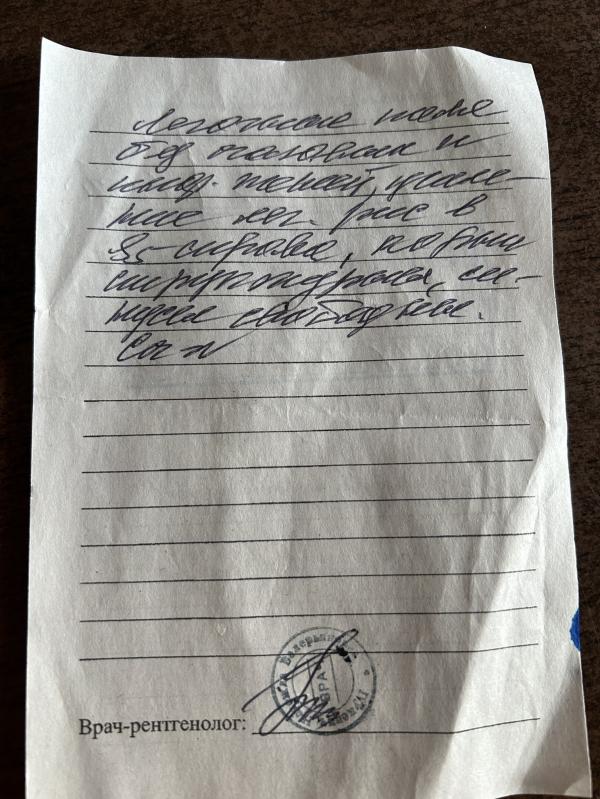 Легочные поля
без очаговых и
инф. теней, усиле-
ние лег. рис в
S5 справа, корни
структурны, си-
нусы свободные.
Cor N
Врач-рентгенолог: